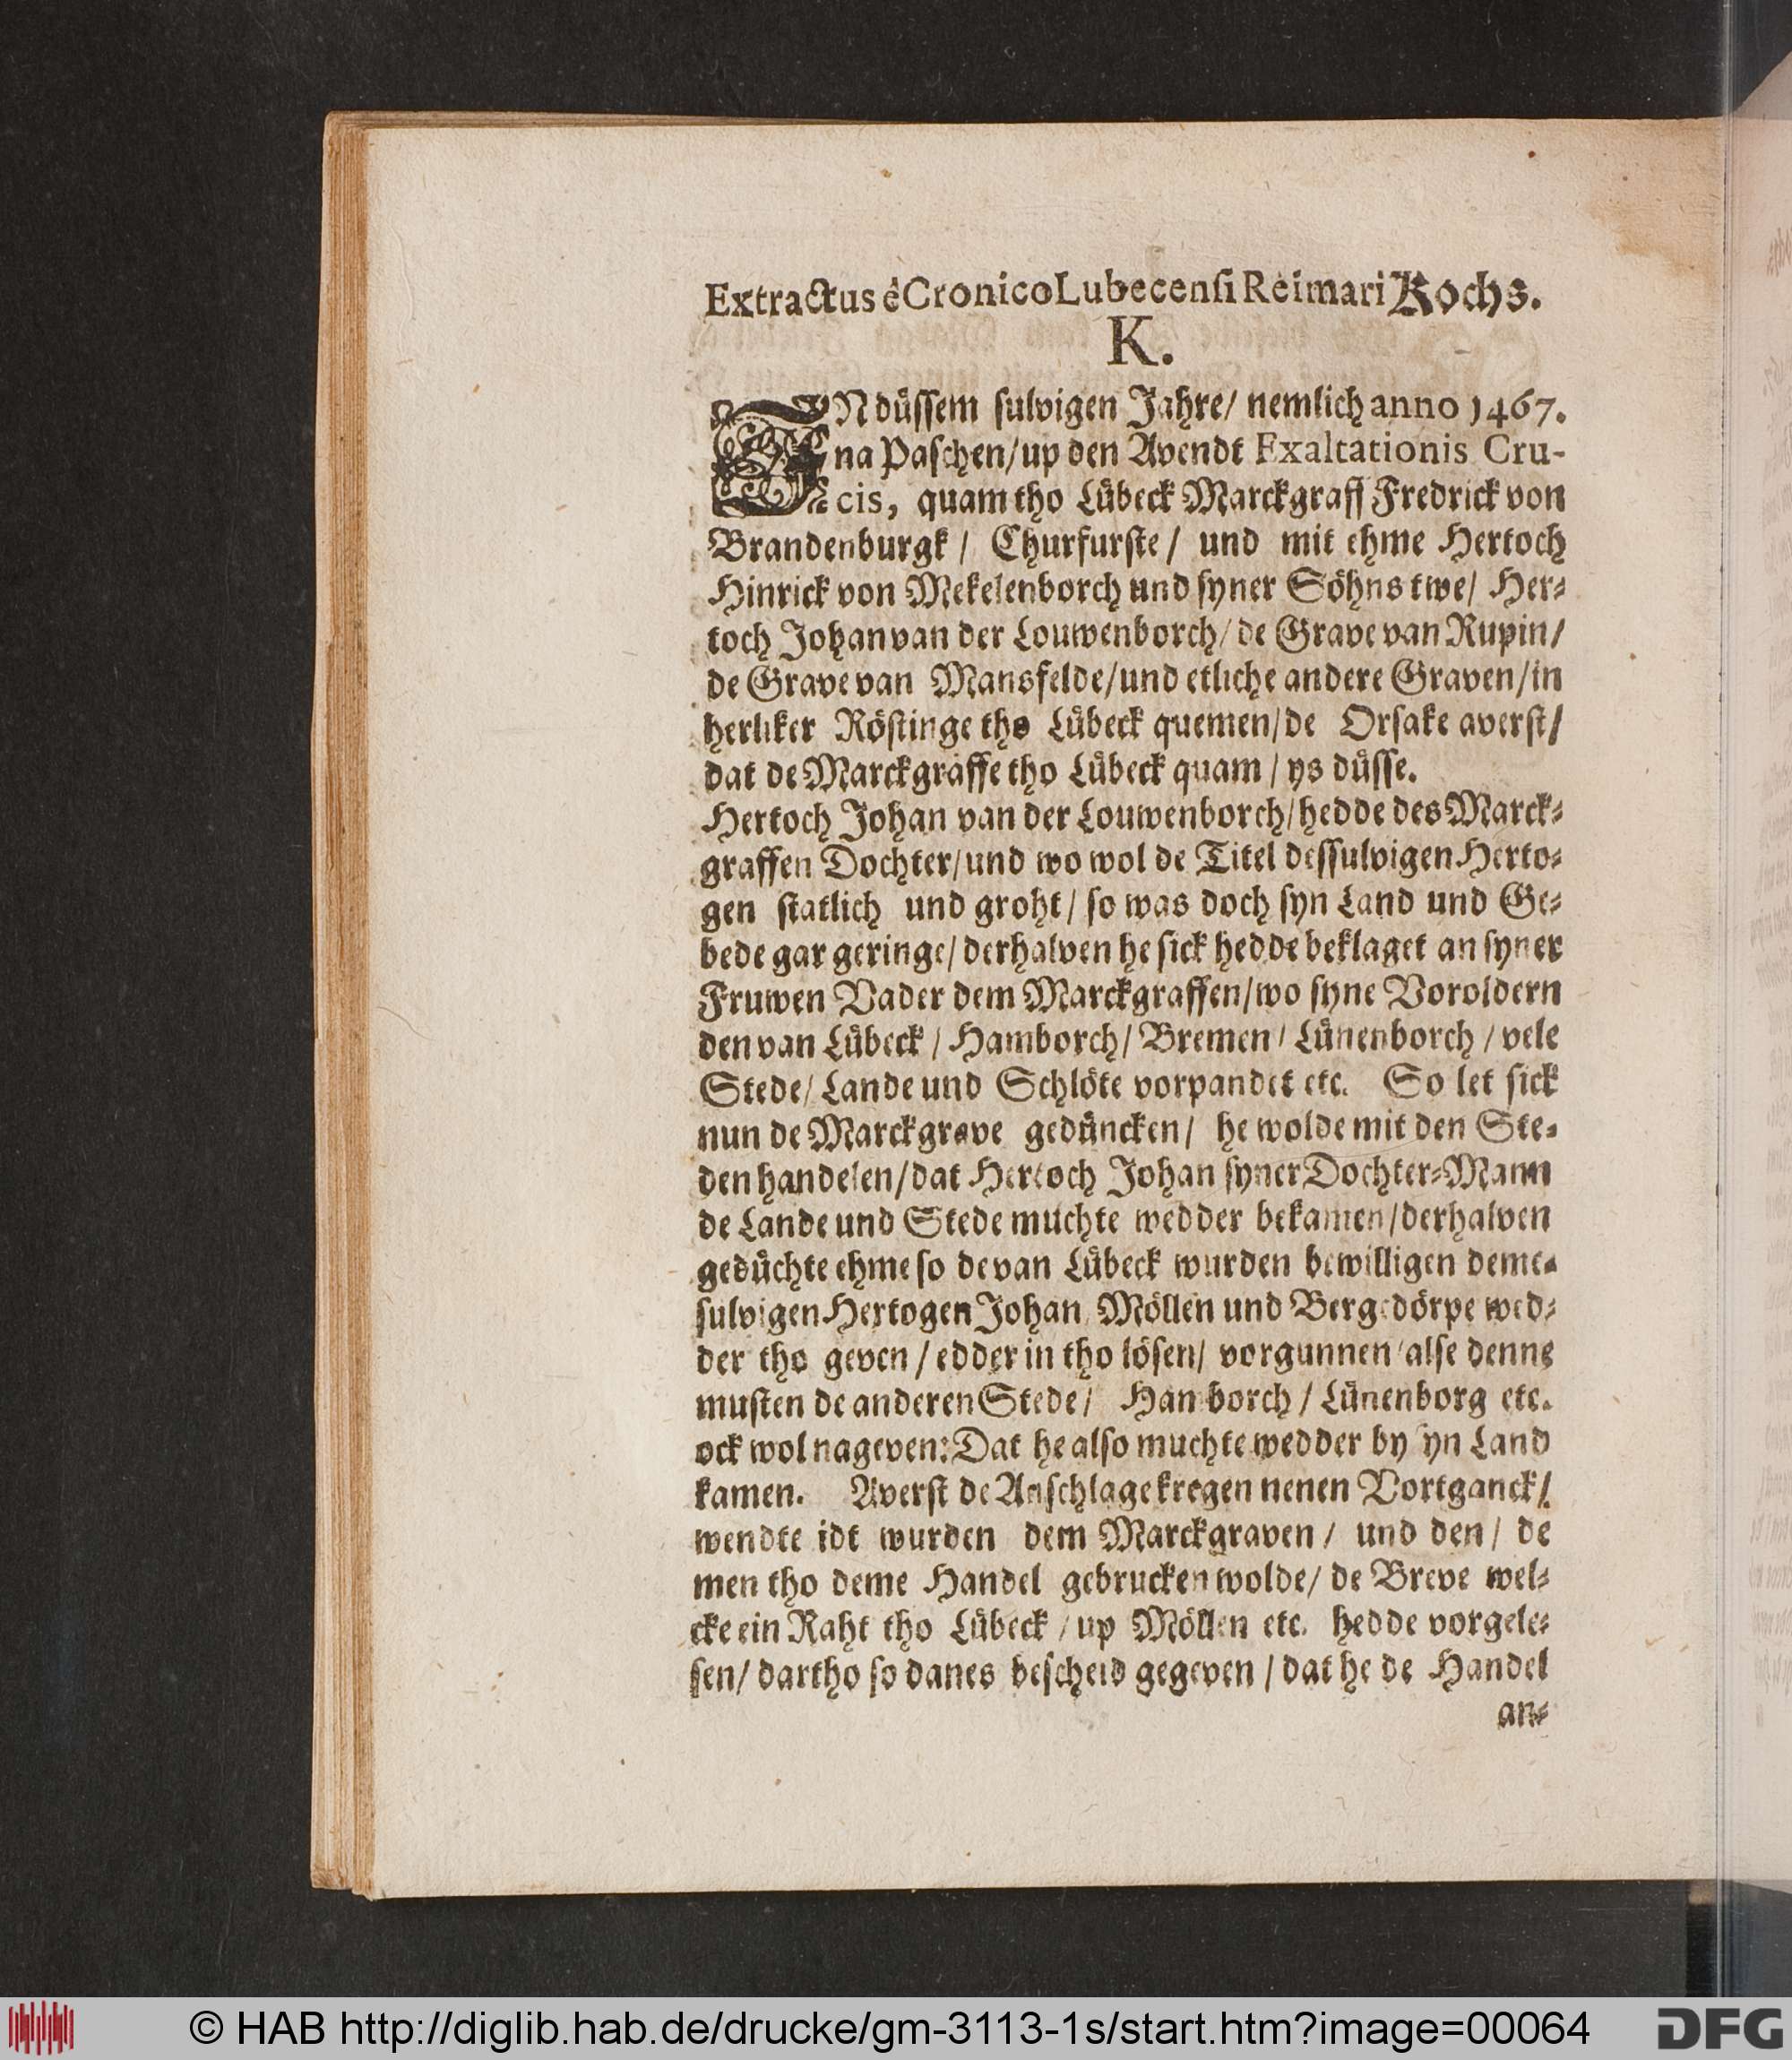 Extractus è Cronico Lubecensi Reimari Kochs.
K.
IN düssem sulvigen Jahre/ nemlich anno 1467.
na Paschen/ up den Avendt Exaltationis Cru-
cis, quam tho Lübeck Marckgraff Fredrick von
Brandenburgk / Churfurste / und mit ehme Hertoch
Hinrick von Mekelenborch und syner Söhns twe/ Her-
toch Johan van der Louwenborch/ de Grave van Rupin/
de Grave van Mansfelde/ und etliche andere Graven/ in
herliker Röstinge tho Lübeck quemen/ de Orsake averst/
dat de Marckgraffe tho Lübeck quam / ys düsse.
Hertoch Johan van der Louwenborch/ hedde des Marck-
graffen Dochter/ und wo wol de Titel dessulvigen Herto-
gen statlich und groht/ so was doch syn Land und Ge-
bede gar geringe/ derhalven he sick hedde beklaget an syner
Fruwen Vader dem Marckgraffen/ wo syne Voroldern
den van Lübeck / Hamborch/ Bremen/ Lünenborch / vele
Stede/ Lande und Schlöte vorpandet etc. So let sick
nun de Marckgrave gedüncken/ he wolde mit den Ste-
den handelen/ dat Hertoch Johan syner Dochter-Mann
de Lande und Stede muchte wedder bekamen/ derhalven
gedüchte ehme so de van Lübeck wurden bewilligen deme-
sulvigen Hertogen Johan Möllen und Bergedörpe wed-
der tho geven / edder in tho lösen/ vorgunnen/ alse denne
musten de anderen Stede/ Hamborch / Lünenborg etc.
ock wol nageven: Dat he also muchte wedder by syn Land
kamen. Averst de Anschlage kregen nenen Vortganck/
wendte idt wurden dem Marckgraven / und den / de
men tho deme Handel gebrucken wolde/ de Breve wel-
cke ein Raht tho Lübeck / up Möllen etc. hedde vorgele-
sen/ dartho so danes bescheid gegeven / dat he de Handel
an-
© HAB http://diglib.hab.de/drucke/gm-3113-1s/start.htm?image=00064
DFG